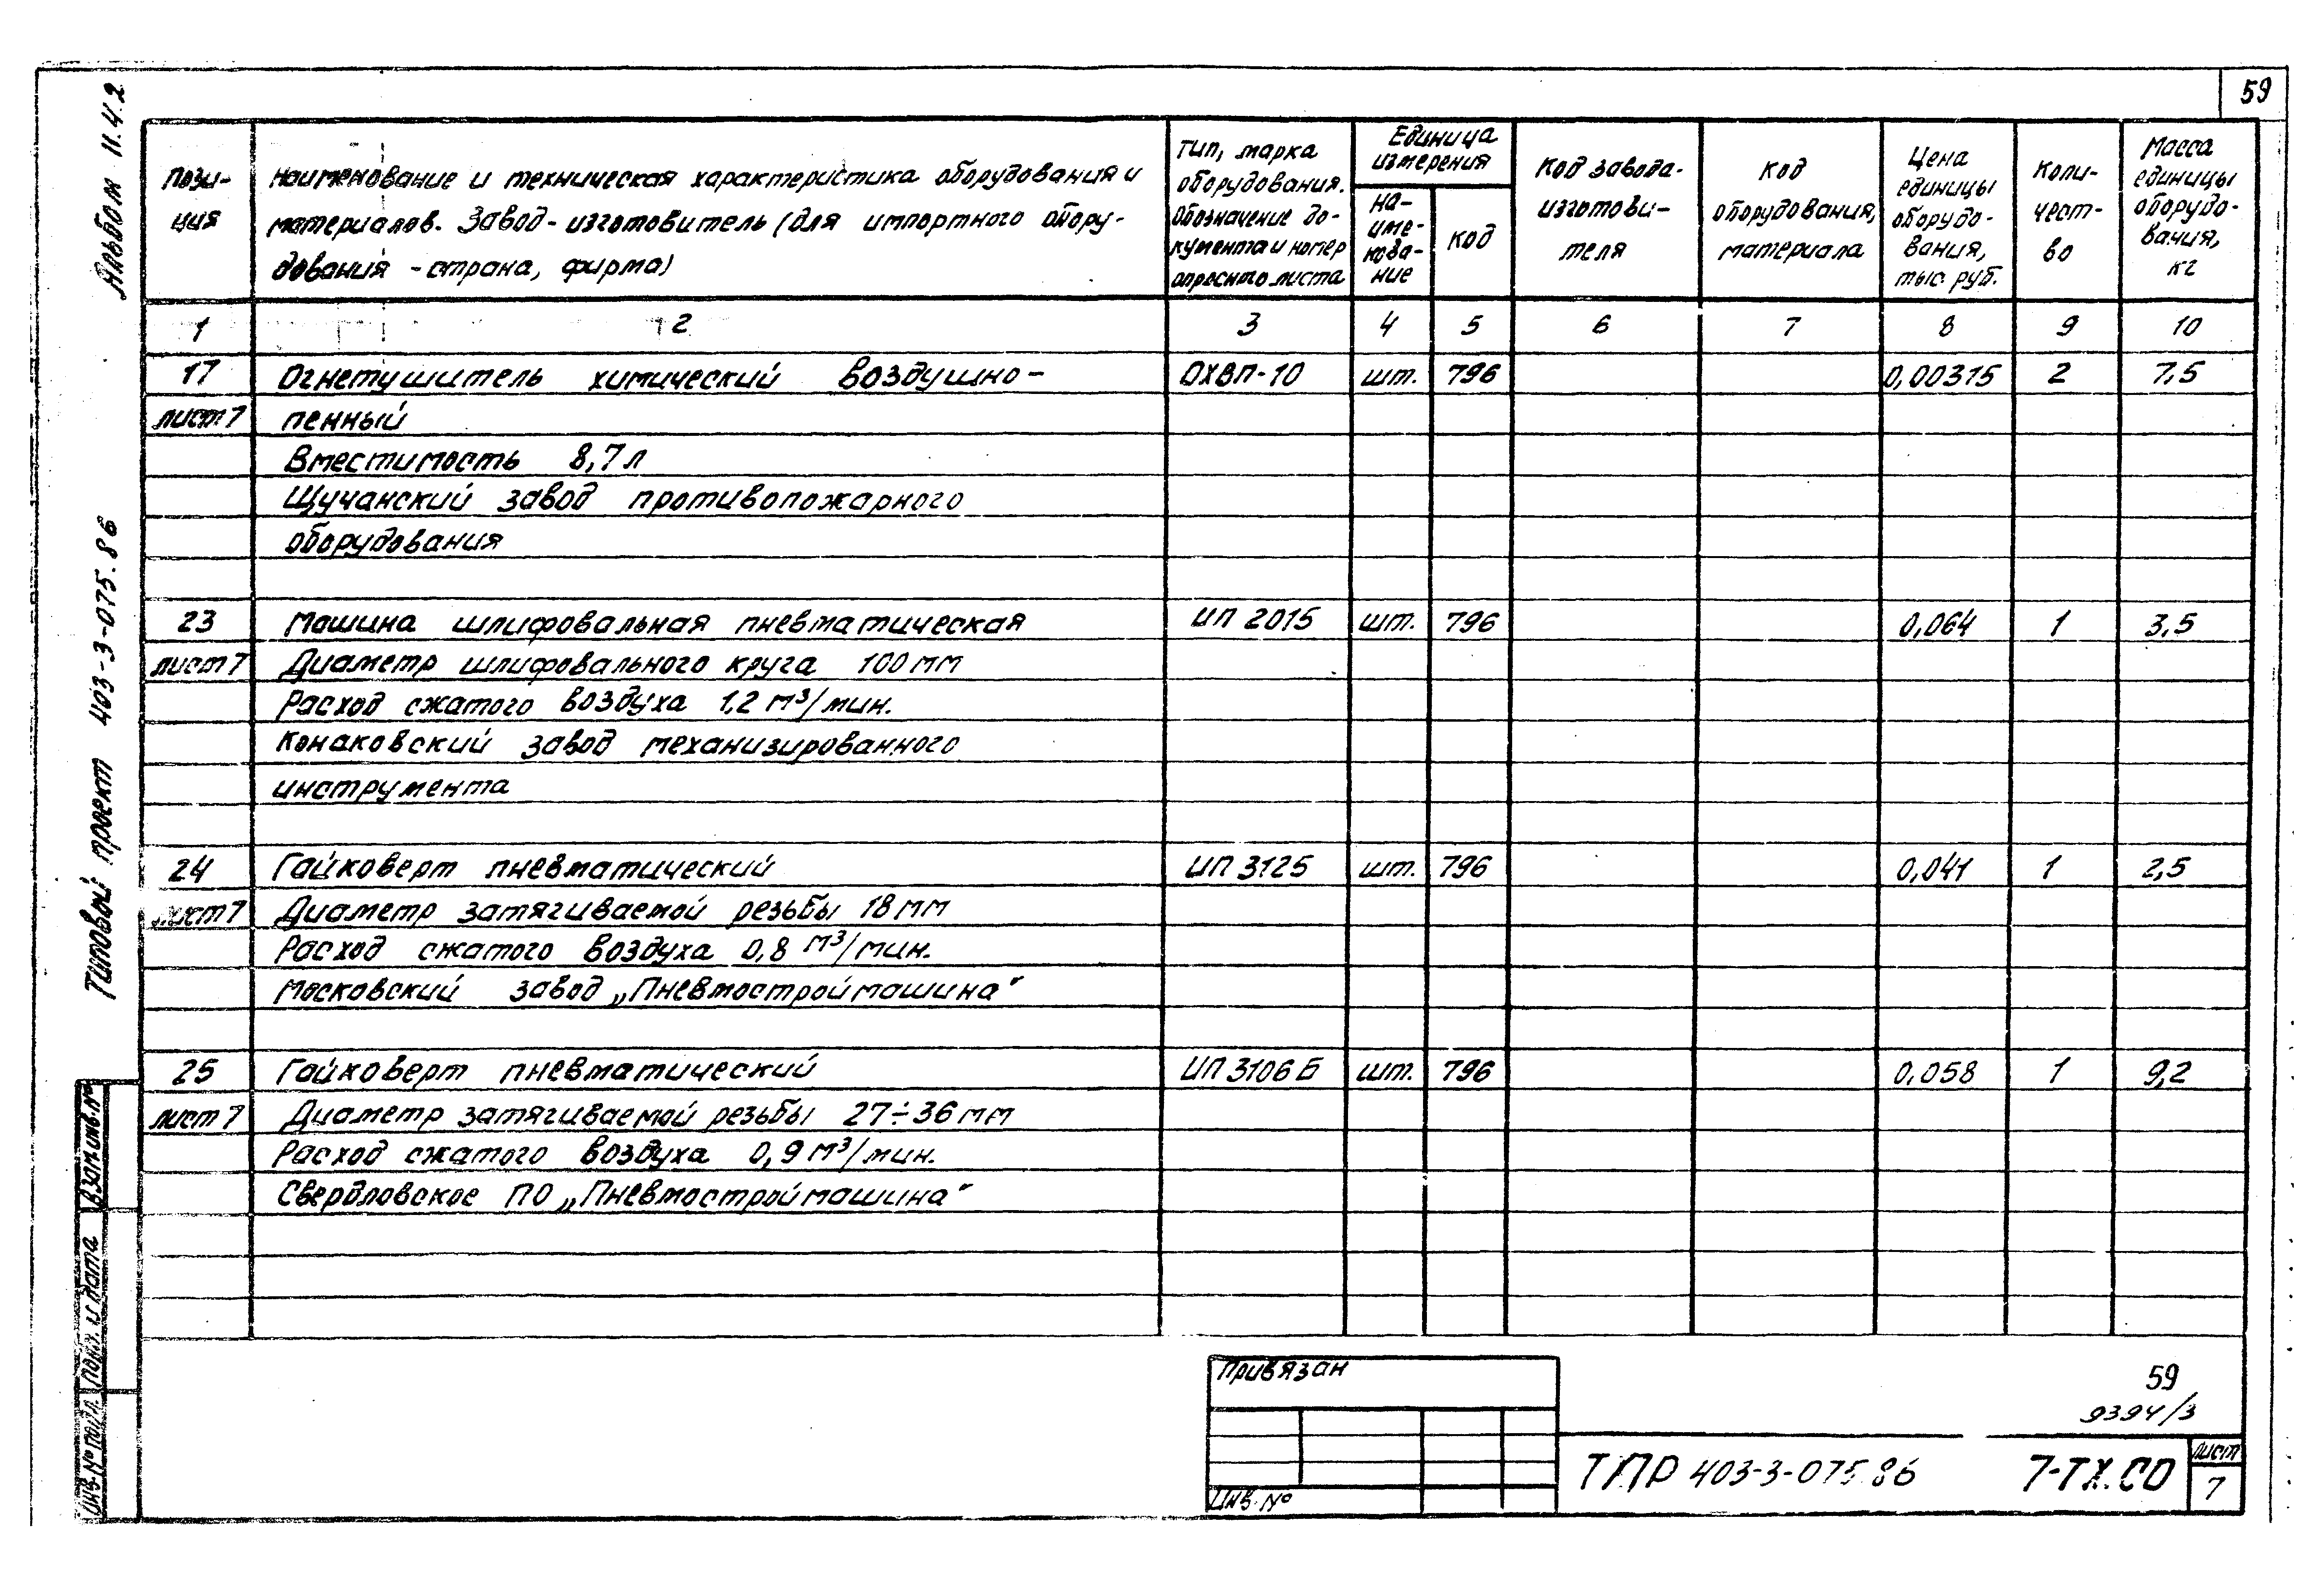 59
Альбом II.4.2
Типовой проект 403-3-075.86
Пози-
ция
Наименование и техническая характеристика оборудования и
материалов. Завод-изготовитель (для импортного обору-
дования - страна, фирма)
Тип, марка
оборудования.
Обозначение до-
кумента и номер
опросного листа
Единица
измерения
На-
име-
нова-
ние
код
Код завода-
изготови-
теля
Код
оборудования,
материала
Цена
единицы
оборудо-
вания,
тыс. руб.
Коли-
чест-
во
Масса
единицы
оборудо-
вания,
кг
1 2 3 4 5 6 7 8 9 10
17 Огнетушитель химический воздушно- ОХВП-10 шт. 796 0,00315 2 7,5
лист 7 пенный
Вместимость 8,7 л
Щучанский завод противопожарного
оборудования
23 Машина шлифовальная пневматическая ИП 2015 шт. 796 0,064 1 3,5
лист 7 Диаметр шлифовального круга 100 мм
Расход сжатого воздуха 1,2 м³/мин.
Конаковский завод механизированного
инструмента
24 Гайковерт пневматический ИП 3125 шт. 796 0,041 1 2,5
лист 7 Диаметр затягиваемой резьбы 18 мм
Расход сжатого воздуха 0,8 м³/мин.
Московский завод „Пневмостроймашина"
25 Гайковерт пневматический ИП 3106 Б шт. 796 0,058 1 9,2
лист 7 Диаметр затягиваемой резьбы 27÷36 мм
Расход сжатого воздуха 0,9 м³/мин.
Свердловское ПО „Пневмостроймашина"
Взам. инв. №
Подп. и дата
Инв. № подл.
Привязан
Инв. №
59
9394/3
ТПР 403-3-075.86 7-ТХ.СО
Лист
7